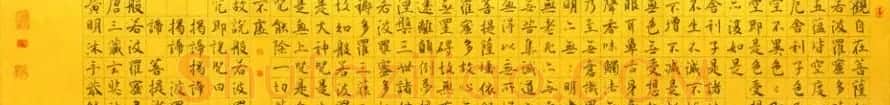 觀自在菩薩
五蘊皆空度
厄舍利子色
空不異色色
空即是色受
亦復如是
舍利子是諸
不生不滅不
不增不減
無色無受想
眼耳鼻舌身
聲香味觸法
乃至無意識
明亦無無明
無老死亦無
苦集滅道
無得以無所
菩提薩埵依
蜜多故心無
無罣礙故無
遠離顛倒夢
涅槃三世諸
若波羅蜜多
耨多羅三藐
故知般若波
是大神咒是
是無上咒是
咒能除一切
不虛
故說般若波
咒即說咒曰
揭諦揭諦
揭諦 波
諦 菩提
般若波羅蜜
唐三藏玄奘
黃明沐手敬